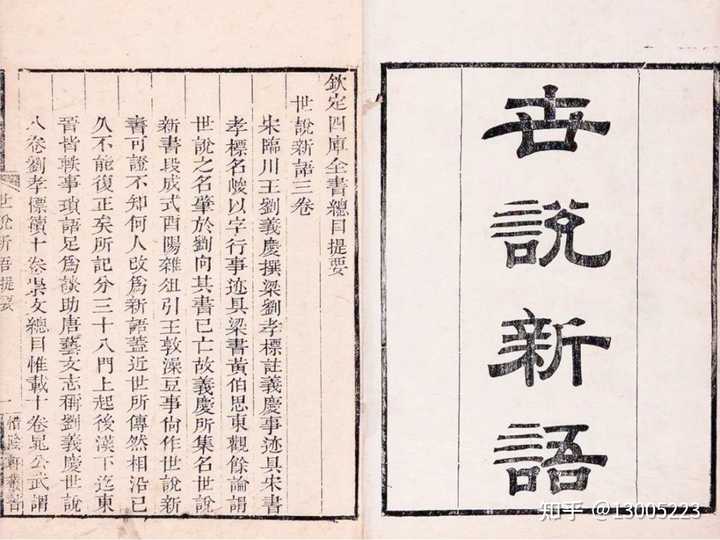 世說新語
欽定四庫全書總目提要
世說新語三卷
宋臨川王劉義慶撰梁劉孝標註義慶事迹具宋書
孝標名峻以字行事迹具梁書黃伯思東觀餘論謂
世說之名肇於劉向其書已亡故義慶所集名世說
新書段成式酉陽雜俎引王敦澡豆事尙作世說新
書可證不知何人改爲新語蓋近世所傳然相沿已
久不能復正矣所記分三十八門上起後漢下迄東
晉皆軼事瑣語足爲談助唐藝文志稱劉義慶世說
八卷劉孝標續十卷崇文總目惟載十卷晁公武謂
世說新語提要
一
惜陰軒叢書
知乎 @13005223